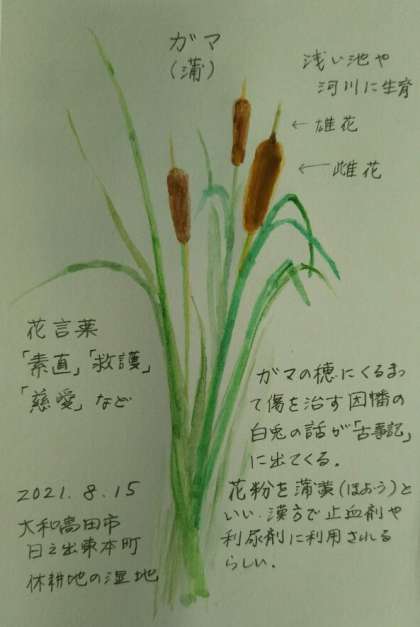 ガマ
(蒲)
浅い池や
河川に生育
← 雄花
← 雌花
花言葉
「素直」「救護」
「慈愛」など
ガマの穂にくるまっ
て傷を治す因幡の
白兎の話が「古事記」
に出てくる。
花粉を蒲黄(ほおう)と
いい、漢方で止血剤や
利尿剤に利用される
らしい。
2021.8.15
大和高田市
日之出東本町
休耕地の湿地